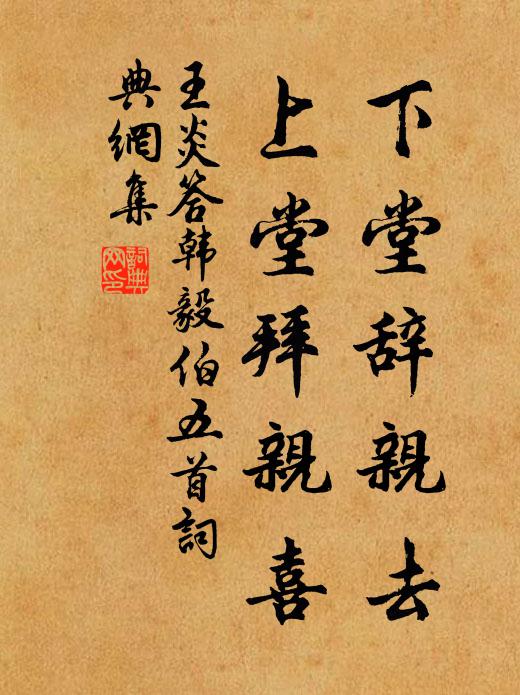 下堂辞親去
上堂拜親喜
王炎答韩毅伯五首詞
典網集
詞典
网印